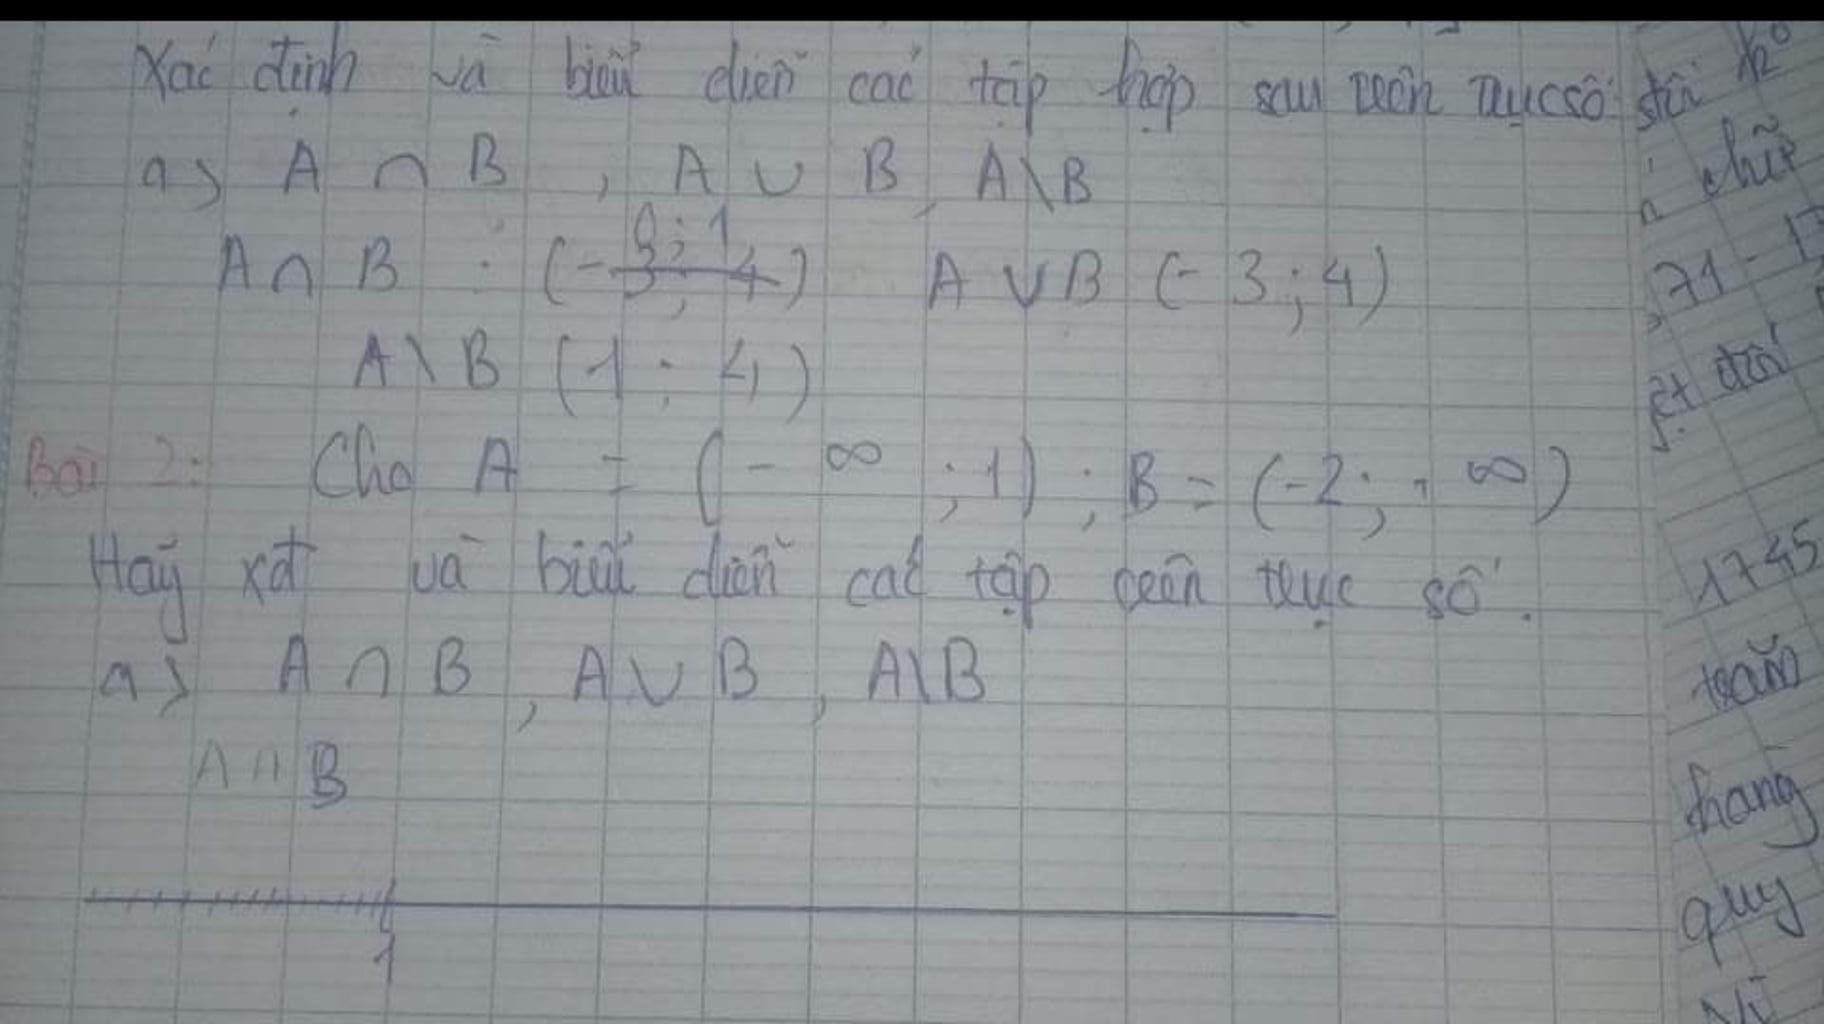 Xác định và biểu diễn các tập hợp sau trên trục số
a) A ∩ B , A ∪ B, A\B
0 ; 1
A ∩ B : (-3 ; 4) A ∪ B (-3 ; 4)
A \ B (1 ; 4)
Bài 2: Cho A = (- ∞ ; 1) ; B = (-2 ; + ∞)
Hãy xđ và biểu diễn các tập trên trục số.
a) A ∩ B , A ∪ B , A\B
A ∩ B
1
chữ
71 - 1
1745
hang
quy